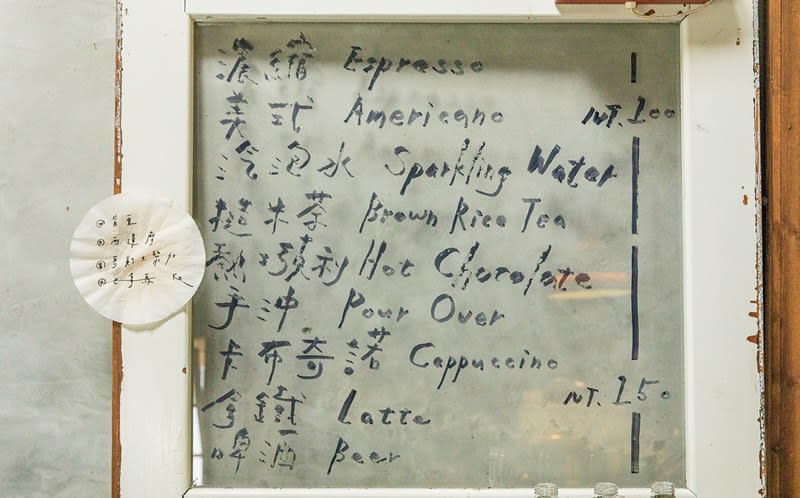 濃縮 Espresso
美式 Americano NT. 100
汽泡水 Sparkling Water
Brown Rice Tea
熱巧克力 Hot Chocolate
手沖 Pour Over
卡布奇諾 Cappuccino
拿鐵 Latte NT. 150
啤酒 Beer